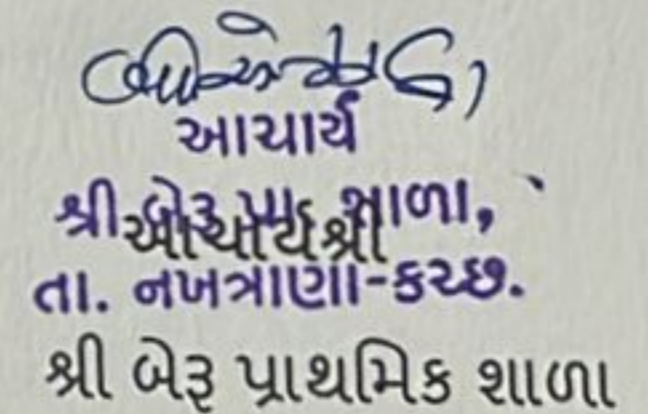 આચાર્ય
શ્રી બેરૂ પ્રા. શાળા,
આચાર્યશ્રી
તા. નખત્રાણા-કચ્છ.
શ્રી બેરૂ પ્રાથમિક શાળા